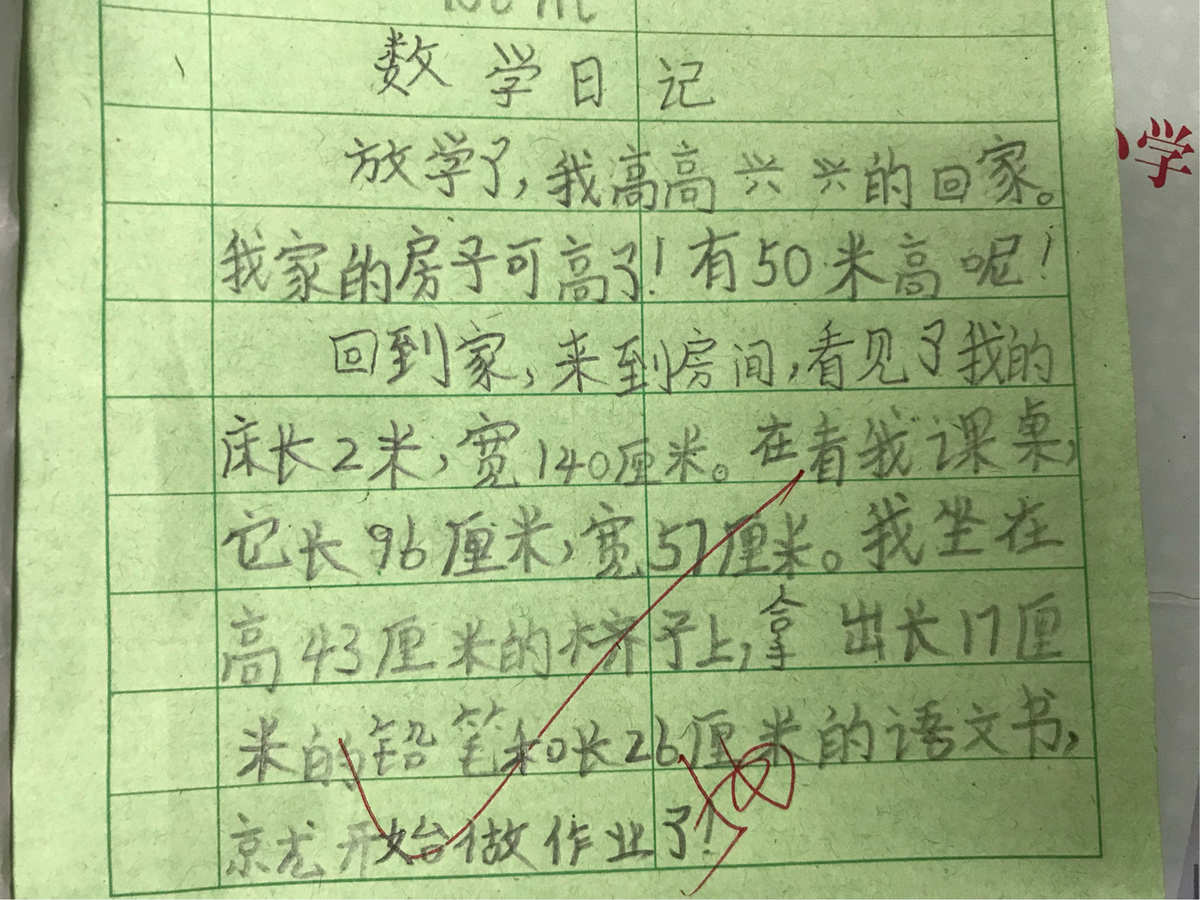 数学日记
放学了,我高高兴兴的回家。
我家的房子可高了!有50米高呢!
回到家,来到房间,看见了我的
床长2米,宽140厘米。在看我课桌,
它长96厘米,宽57厘米。我坐在
高43厘米的椅子上,拿出长17厘
米的铅笔和长26厘米的语文书,
就开始做作业了!
学